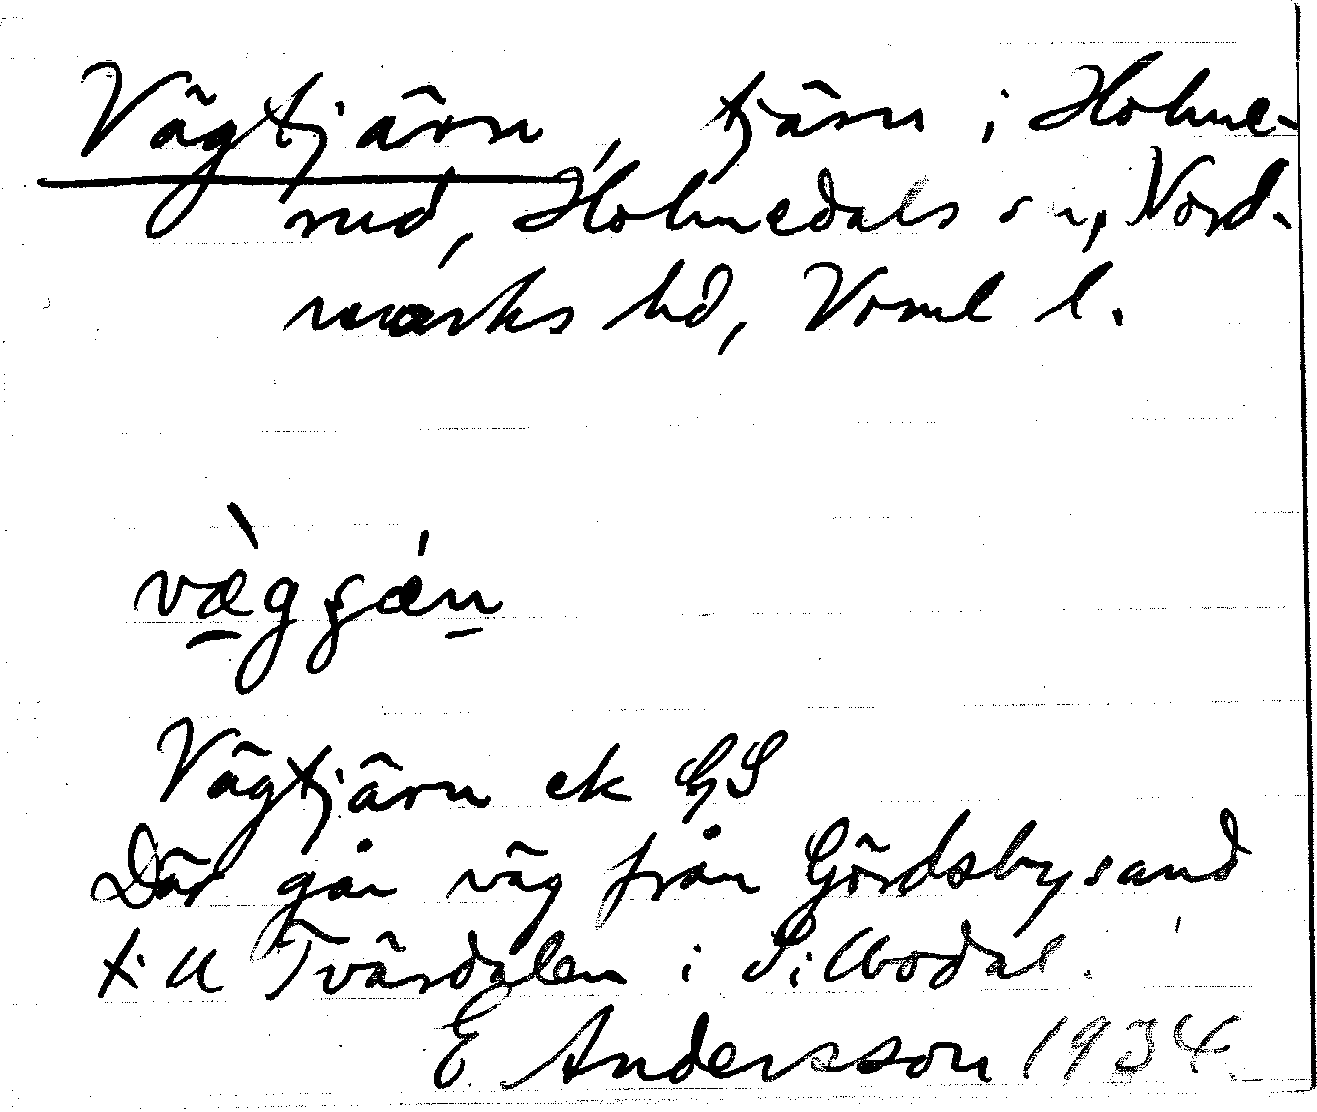 Vägtjärn, tjärn i Holme-
rud, Holmedals sn, Nord-
marks hd, Verml l.
væ̱̀gʂæ̀ṉ
Vägtjärn ek GS
Där går väg från Gördsbysand
till Tvärdalen i Sillbodal.
E Andersson 1934.